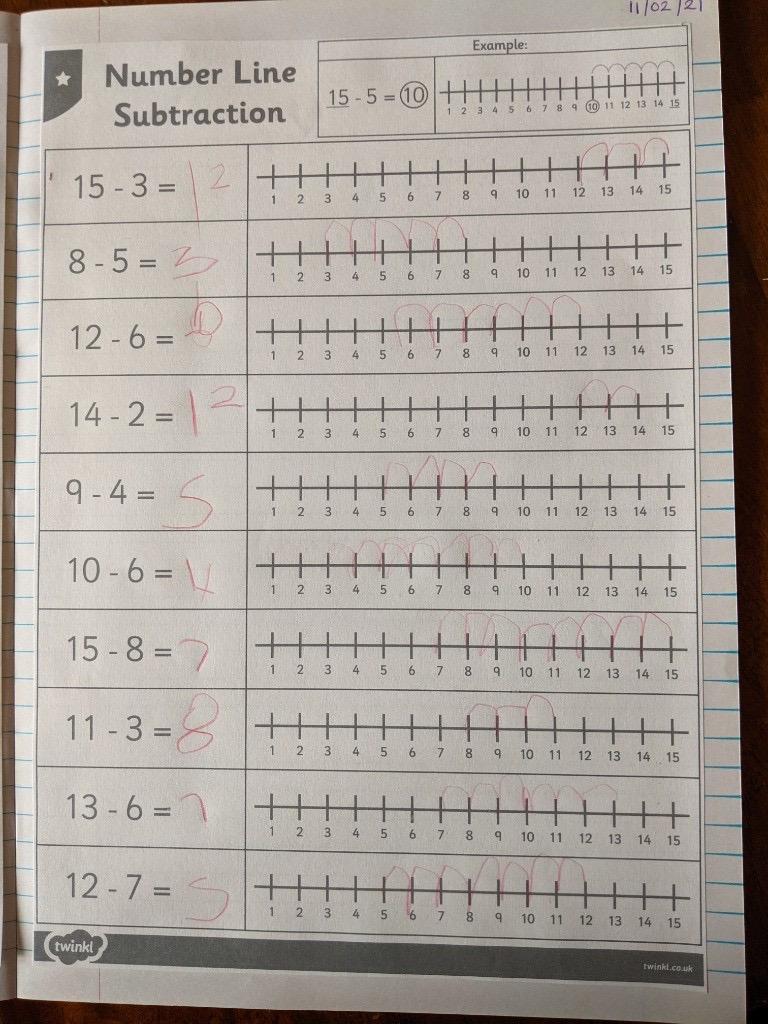 11/02/21
Number Line
Subtraction
Example:
15 - 5 = 10
1 2 3 4 5 6 7 8 9 10 11 12 13 14 15
15 - 3 = 12
1 2 3 4 5 6 7 8 9 10 11 12 13 14 15
8 - 5 = 3
1 2 3 4 5 6 7 8 9 10 11 12 13 14 15
12 - 6 =
1 2 3 4 5 6 7 8 9 10 11 12 13 14 15
14 - 2 = 12
1 2 3 4 5 6 7 8 9 10 11 12 13 14 15
9 - 4 = 5
1 2 3 4 5 6 7 8 9 10 11 12 13 14 15
10 - 6 = 4
1 2 3 4 5 6 7 8 9 10 11 12 13 14 15
15 - 8 = 7
1 2 3 4 5 6 7 8 9 10 11 12 13 14 15
11 - 3 = 8
1 2 3 4 5 6 7 8 9 10 11 12 13 14 15
13 - 6 = 7
1 2 3 4 5 6 7 8 9 10 11 12 13 14 15
12 - 7 = 5
1 2 3 4 5 6 7 8 9 10 11 12 13 14 15
twinkl
twinkl.co.uk